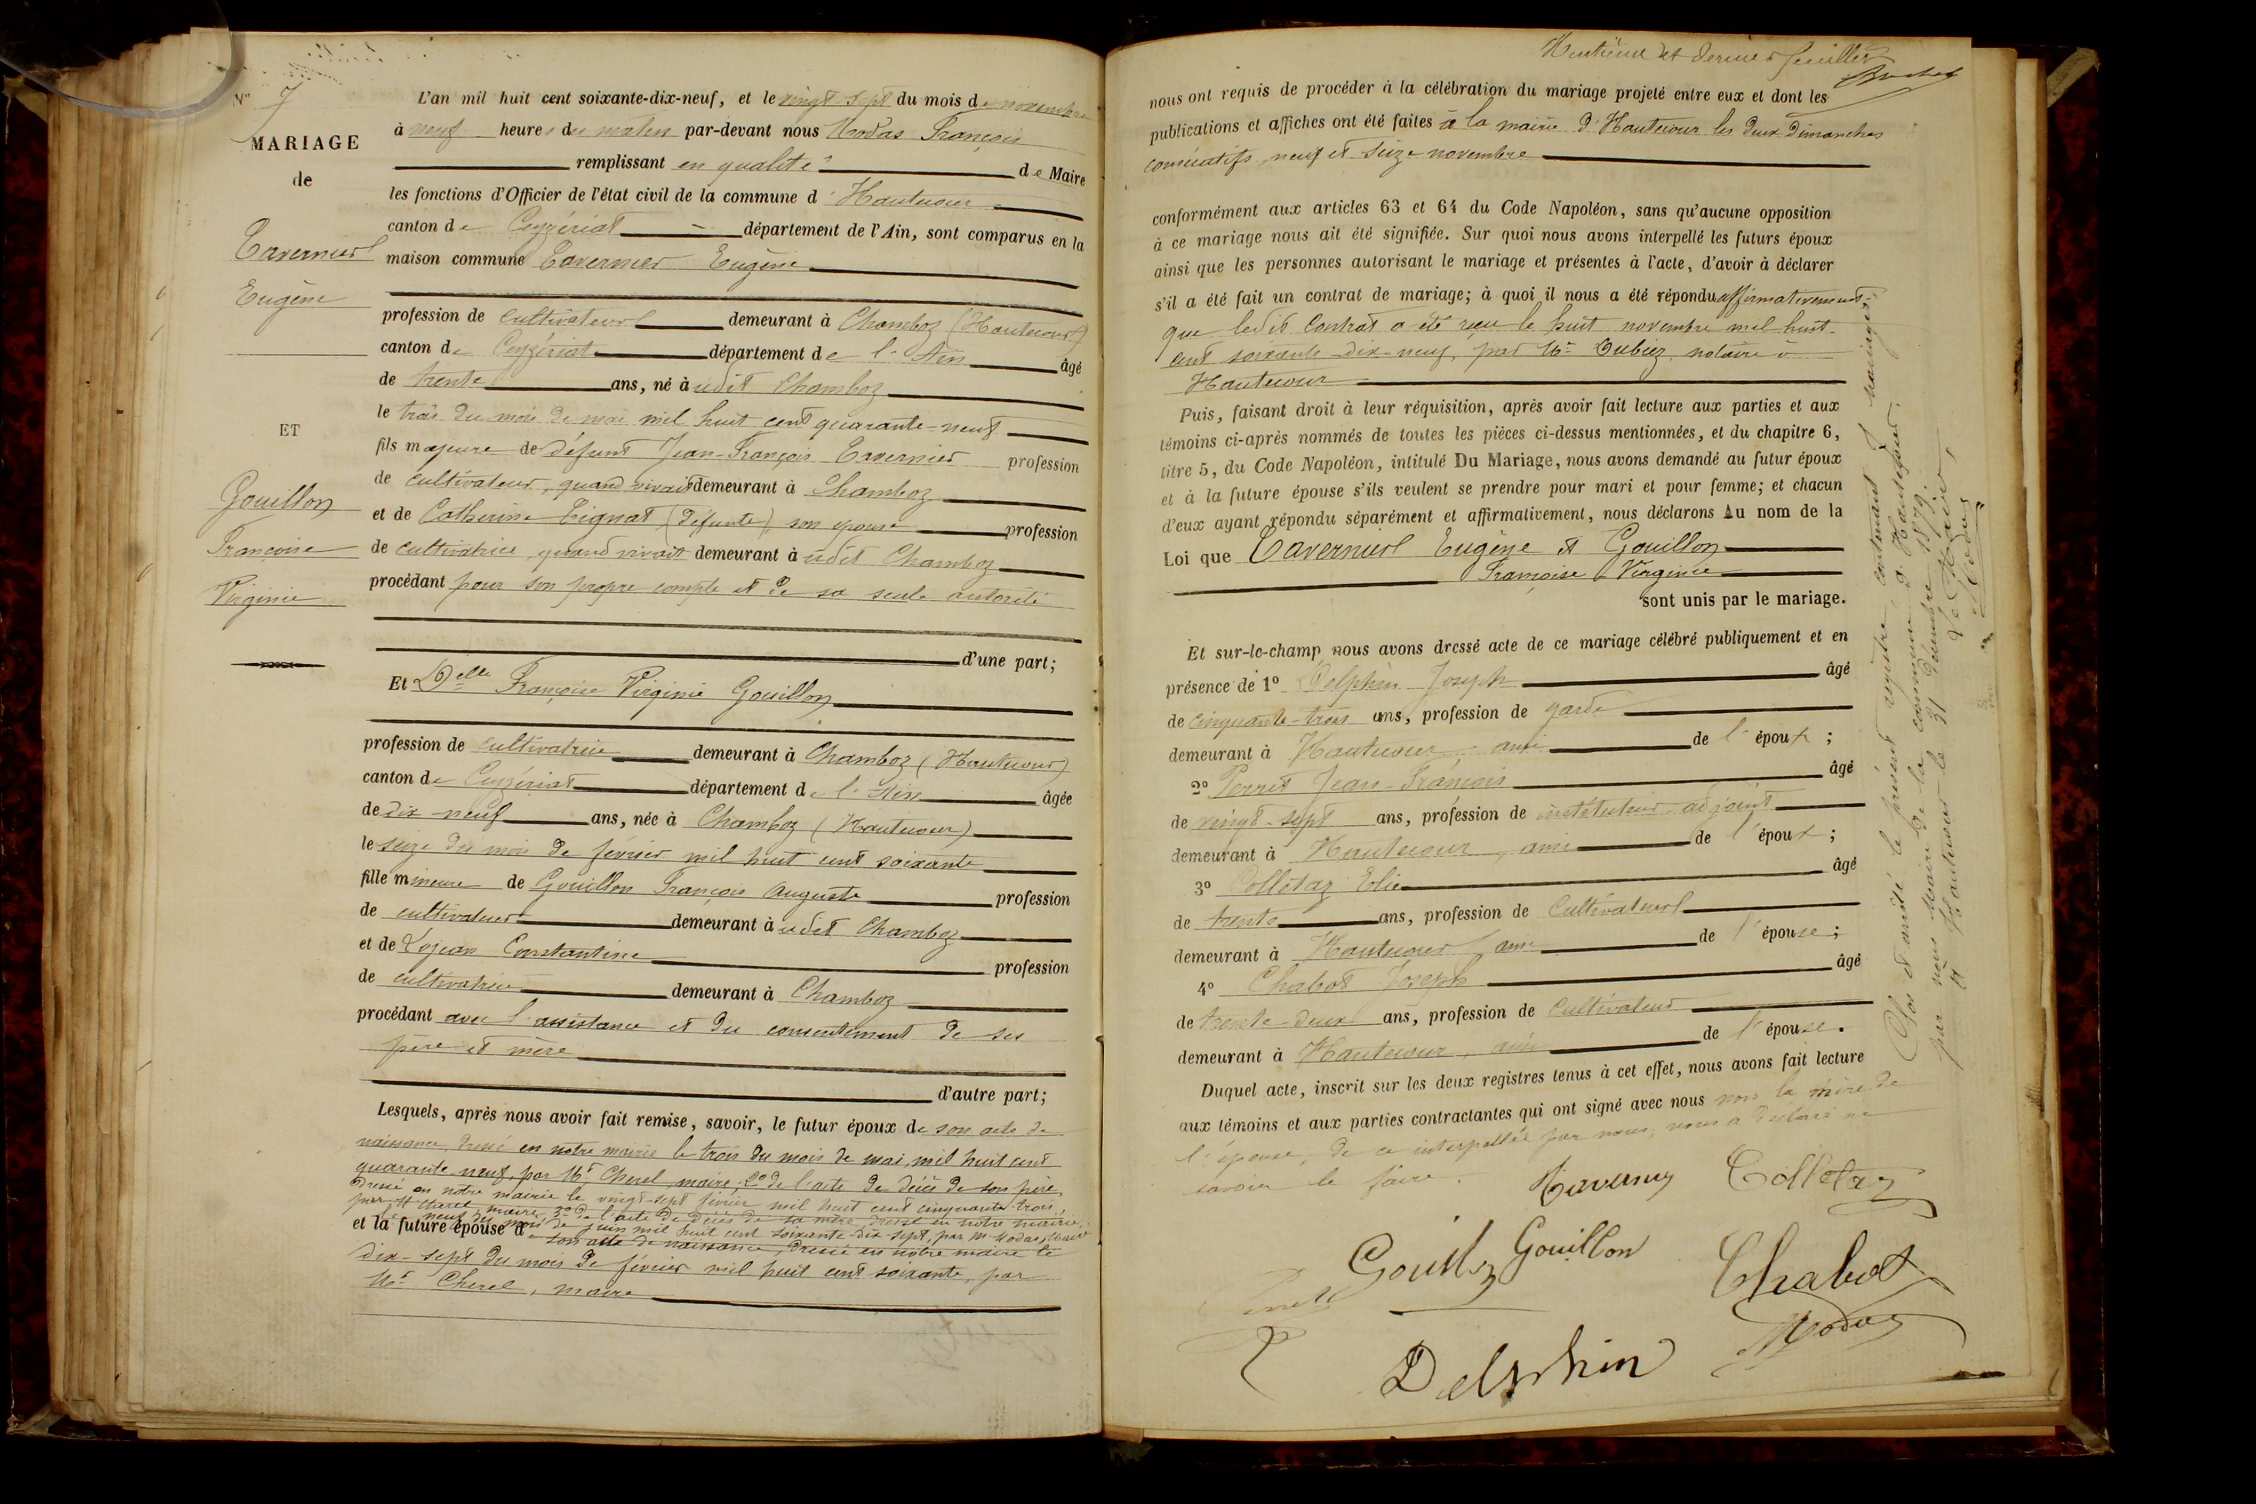 N° 7
MARIAGE
de
Tavernier
Eugène
ET
Gouillon
Françoise
Virginie
L'an mil huit cent soixante-dix-neuf, et le vingt sept du mois de novembre
à neuf heures du matin par-devant nous Modas François
remplissant en qualité de Maire
les fonctions d'Officier de l'état civil de la commune d'Hautecour
canton de Ceyzériat département de l'Ain, sont comparus en la
maison commune Tavernier Eugène
profession de cultivateur demeurant à Chamboz (Hautecour)
canton de Ceyzériat département de l'Ain âgé
de trente ans, né à udit Chamboz
le trois du mois de mai mil huit cent quarante-neuf
fils majeure de défunt Jean-François Tavernier profession
de cultivateur, quand vivait demeurant à Chamboz
et de Catherine Tignat (défunte), son épouse profession
de cultivatrice, quand vivait demeurant à udit Chamboz
procédant pour son propre compte et de sa seule autorité
d'une part;
Et Delle Françoise Virginie Gouillon
profession de cultivatrice demeurant à Chamboz (Hautecour)
canton de Ceyzériat département de l'Ain âgée
de dix-neuf ans, née à Chamboz (Hautecour)
le seize du mois de février mil huit cent soixante
fille mineure de Gouillon François Auguste profession
de cultivateur demeurant à udit Chamboz
et de Lojean Constantine profession
de cultivatrice demeurant à Chamboz
procédant avec l'assistance et du consentement de ses
père et mère
d'autre part;
Lesquels, après nous avoir fait remise, savoir, le futur époux de son acte de
naissance, dressé en notre mairie le trois du mois de mai, mil huit cent
quarante-neuf, par Mr Cherel, maire; 2° de l'acte de décès de son père,
dressé en notre mairie le vingt-sept février mil huit cent cinquante-trois,
par M Cherel, maire, 3° de l'acte de décès de sa mère, dressé en notre mairie,
le neuf du mois de juin mil huit cent soixante-dix-sept, par M. Modas, maire
et la future épouse de son acte de naissance, dressé en notre mairie le
dix-sept du mois de février mil huit cent soixante, par
Mr Cherel, maire
Huitième et dernier feuillet
nous ont requis de procéder à la célébration du mariage projeté entre eux et dont les
publications et affiches ont été faites à la mairie d'Hautecour les deux dimanches
consécutifs, neuf et seize novembre
conformément aux articles 63 et 64 du Code Napoléon, sans qu'aucune opposition
à ce mariage nous ait été signifiée. Sur quoi nous avons interpellé les futurs époux
ainsi que les personnes autorisant le mariage et présentes à l'acte, d'avoir à déclarer
s'il a été fait un contrat de mariage; à quoi il nous a été répondu affirmativement
que ledit contrat a été reçu le huit novembre mil huit-
cent soixante-dix-neuf, par Me Dubiez, notaire à
Hautecour
Puis, faisant droit à leur réquisition, après avoir fait lecture aux parties et aux
témoins ci-après nommés de toutes les pièces ci-dessus mentionnées, et du chapitre 6,
titre 5, du Code Napoléon, intitulé Du Mariage, nous avons demandé au futur époux
et à la future épouse s'ils veulent se prendre pour mari et pour femme; et chacun
d'eux ayant répondu séparément et affirmativement, nous déclarons Au nom de la
Loi que Tavernier Eugène et Gouillon
Françoise Virginie
sont unis par le mariage.
Et sur-le-champ nous avons dressé acte de ce mariage célébré publiquement et en
présence de 1° Delphin Joseph âgé
de cinquante-trois ans, profession de garde
demeurant à Hautecour, ami de l'époux;
2° Perret Jean-François âgé
de vingt-sept ans, profession de instituteur-adjoint
demeurant à Hautecour, ami de l'époux;
3° Colletaz Elie âgé
de trente ans, profession de cultivateur
demeurant à Hautecour, ami de l'épouse;
4° Chabot Joseph âgé
de trente-deux ans, profession de cultivateur
demeurant à Hautecour, ami de l'épouse.
Duquel acte, inscrit sur les deux registres tenus à cet effet, nous avons fait lecture
aux témoins et aux parties contractantes qui ont signé avec nous non la mère de
l'épouse, de ce interpellée par nous, nous a déclaré ne
savoir le faire.
Tavernier Colletaz
Gouillon Gouillon Chabot
Perret
Modas
Delphin
Clos et arrêté le présent registre, contenant 7 mariages,
par nous Maire de la commune d'Hautecour.
A Hautecour le 31 décembre 1879.
Le Maire,
Modas